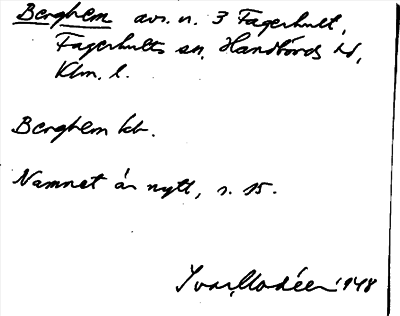 Berghem avs. n. 3 Fagerhult,
Fagerhults sn, Handbörds hd,
Klm. l.
Berghem kb.
Namnet är nytt, s. 15.
Ivar Modéer 1948